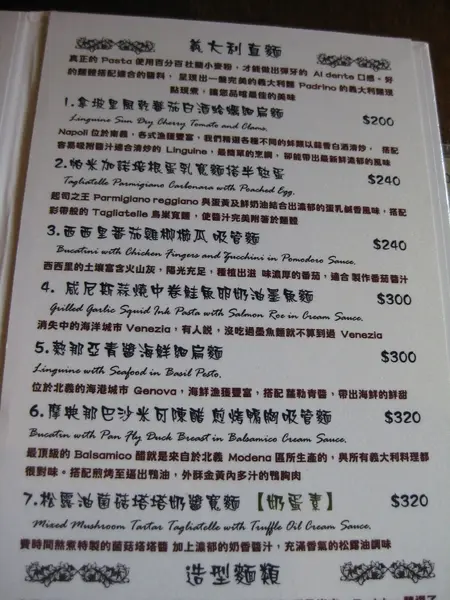 義大利直麵
真正的 Pasta 使用百分百杜蘭小麥粉，才能做出彈牙的 Al dente 口感。好
的麵體搭配適合的醬料，呈現出一盤完美的義大利麵 Padrino 的義大利麵現
點現煮，讓您品嚐最佳的美味
1.拿坡里風乾番茄白酒蛤蠣細扁麵 $200
Linguine Sun Dry Cherry Tomato and Clams.
Napoli 位於南義，各式漁獲豐富，我們精選各種不同的鮮類以蒜香白酒清炒，搭配
容易吸附醬汁適合清炒的 Linguine，最簡單的烹調，卻能帶出最新鮮濃郁的風味
2.帕米加諾培根蛋乳寬麵搭半熟蛋 $240
Tagliatelle Parmigiano Carbonara with Poached Egg.
起司之王 Parmigiano reggiano 與蛋黃及鮮奶油結合出濃郁的蛋乳鹹香風味，搭配
彩帶般的 Tagliatelle 鳥巢寬麵，使醬汁完美附著於麵體
3.西西里番茄雞柳櫛瓜吸管麵 $240
Bucatini with Chicken Fingers and Zucchini in Pomodoro Sauce.
西西里的土壤富含火山灰，陽光充足，種植出滋味濃厚的番茄，適合製作番茄醬汁
4. 威尼斯蒜燒中卷鮭魚明奶油墨魚麵 $300
Grilled Garlic Squid Ink Pasta with Salmon Roe in Cream Sauce.
消失中的海洋城市 Venezia，有人說，沒吃過墨魚麵就不算到過 Venezia
5.熱那亞青醬海鮮細扁麵 $300
Linguine with Seafood in Basil Pesto.
位於北義的海港城市 Genova，海鮮漁獲豐富，搭配羅勒青醬，帶出海鮮的鮮甜
6.摩典那巴沙米可陳醋 煎烤鴨胸吸管麵 $320
Bucatin with Pan Fly Duck Breast in Balsamico Cream Sauce.
最頂級的 Balsamico 醋就是來自於北義 Modena 區所生產的，與所有義大利料理都
很對味。搭配煎烤至逼出鴨油，外酥金黃內多汁的鴨胸肉
7.松露油菌菇塔塔奶醬寬麵【奶蛋素】 $320
Mixed Mushroom Tartar Tagliatelle with Truffle Oil Cream Sauce.
費時間熬煮特製的菌菇塔塔醬 加上濃郁的奶香醬汁，充滿香氣的松露油調味
造型麵類